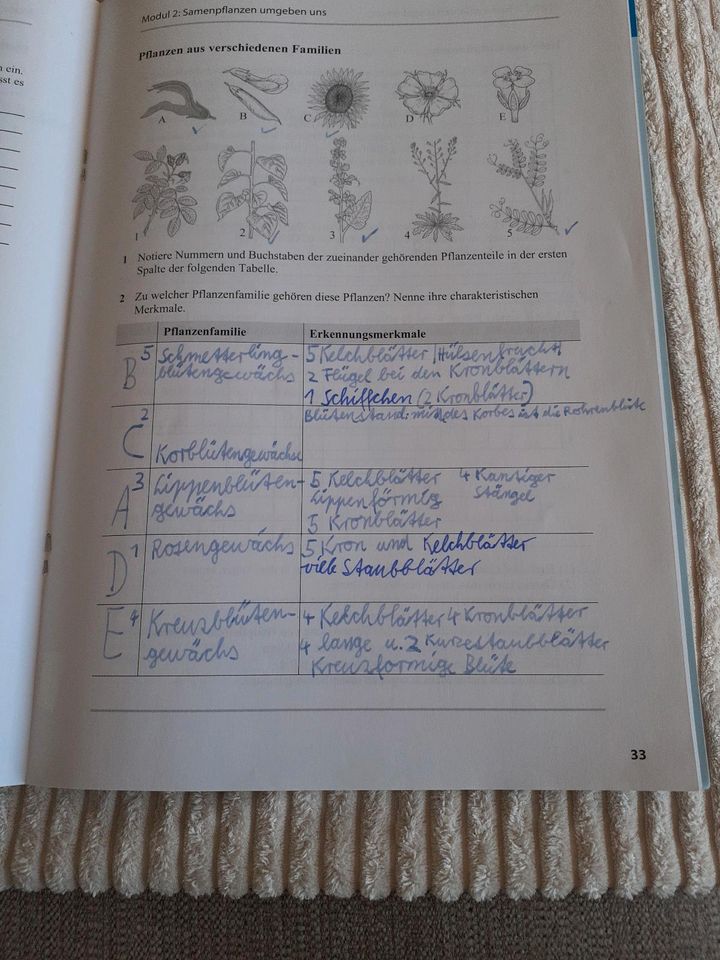 n ein.
sst es
Modul 2: Samenpflanzen umgeben uns
Pflanzen aus verschiedenen Familien
A B C D E
1 2 3 4 5
1 Notiere Nummern und Buchstaben der zueinander gehörenden Pflanzenteile in der ersten
Spalte der folgenden Tabelle.
2 Zu welcher Pflanzenfamilie gehören diese Pflanzen? Nenne ihre charakteristischen
Merkmale.
Pflanzenfamilie Erkennungsmerkmale
B 5 Schmetterling- 5 Kelchblätter Hülsenfrucht
blütengewächs 2 Flügel bei den Kronblättern
1 Schiffchen (2 Kronblätter)
C 2 Blütenstand: des Korbes ist die Röhrenblüte
Korblütengewächse
A 3 Lippenblüten- 5 Kelchblätter 4 Kantiger
gewächs Lippenförmig Stängel
5 Kronblätter
D 1 Rosengewächs 5 Kron und Kelchblätter
viele Staubblätter
E 4 Kreuzblüten- 4 Kelchblätter 4 Kronblätter
gewächs 4 lange u. 2 Kurzestaubblätter
Kreuzförmige Blüte
33